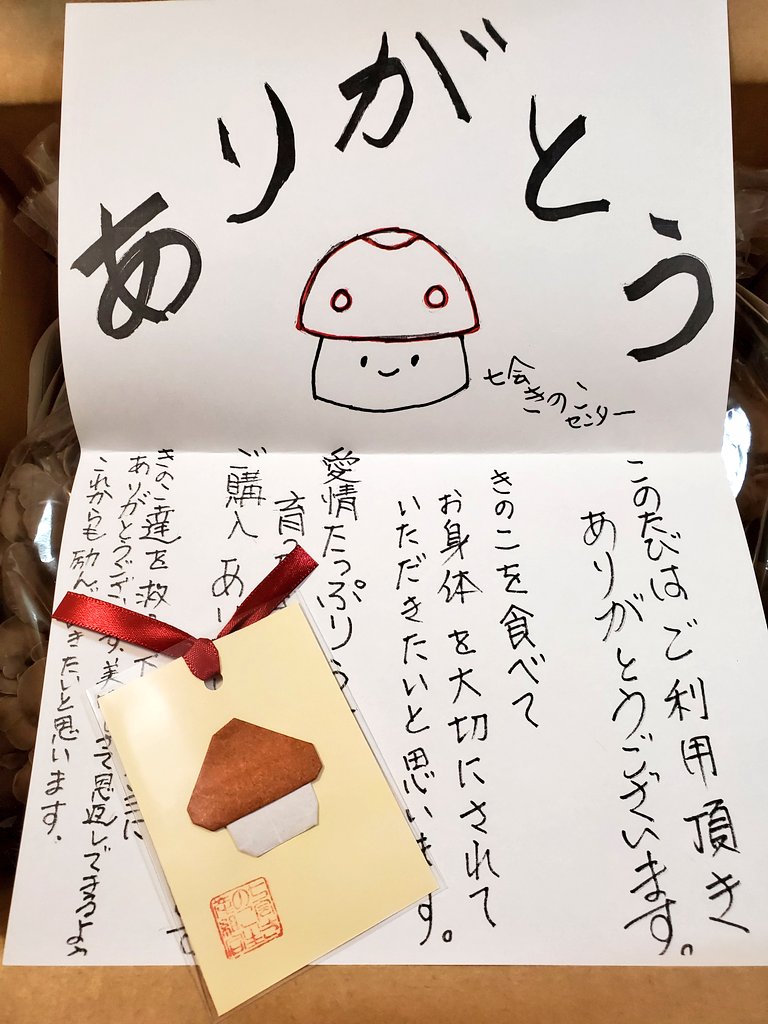 ありがとう
七会
きのこ
センター
このたびはご利用頂き
ありがとうございます。
きのこを食べて
お身体を大切にされて
いただきたいと思います。
愛情たっぷり
育っ
ご購入 あ
きのこ達を救
ありがとうござい
これからも励ん きたいと思います。
て恩返しできるよう